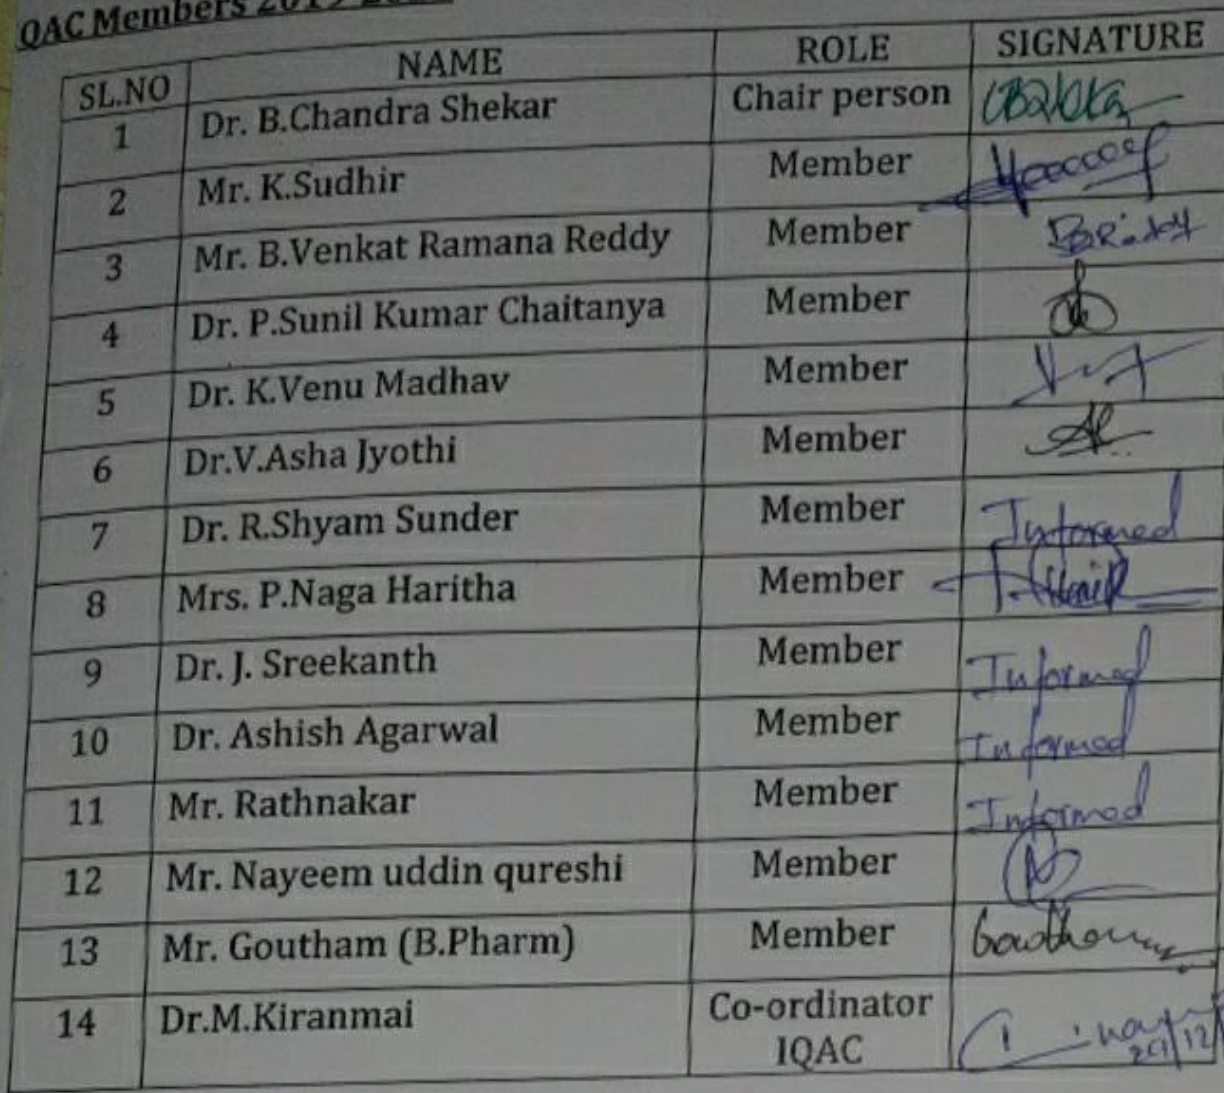 QAC Members
SL.NO NAME ROLE SIGNATURE
1 Dr. B.Chandra Shekar Chair person
2 Mr. K.Sudhir Member
3 Mr. B.Venkat Ramana Reddy Member
4 Dr. P.Sunil Kumar Chaitanya Member
5 Dr. K.Venu Madhav Member
6 Dr.V.Asha Jyothi Member
7 Dr. R.Shyam Sunder Member Informed
8 Mrs. P.Naga Haritha Member
9 Dr. J. Sreekanth Member Informed
10 Dr. Ashish Agarwal Member Informed
11 Mr. Rathnakar Member Informed
12 Mr. Nayeem uddin qureshi Member
13 Mr. Goutham (B.Pharm) Member
14 Dr.M.Kiranmai Co-ordinator
IQAC